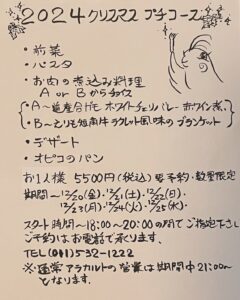 2024 クリスマス プチコース
・前菜
・パスタ
・お肉の煮込み料理
A or Bからチョイス
・A〜道産合がモ ホワイトチェリバレー 赤ワイン煮
・B〜えりも短角牛 ラクレット風味のブランケット
・デザート
・オピコのパン
お1人様 5500円(税込) 要予約・数量限定
期間〜12/20(金)、12/21(土)、12/22(日)、
12/23(月)、12/24(火)、12/25(水)。
スタート時間〜18:00〜20:00の間でご指定下さい
ご予約はお電話で承ります。
TEL(011)532-1222
※通常アラカルトの営業は期間中21:00〜
となります。